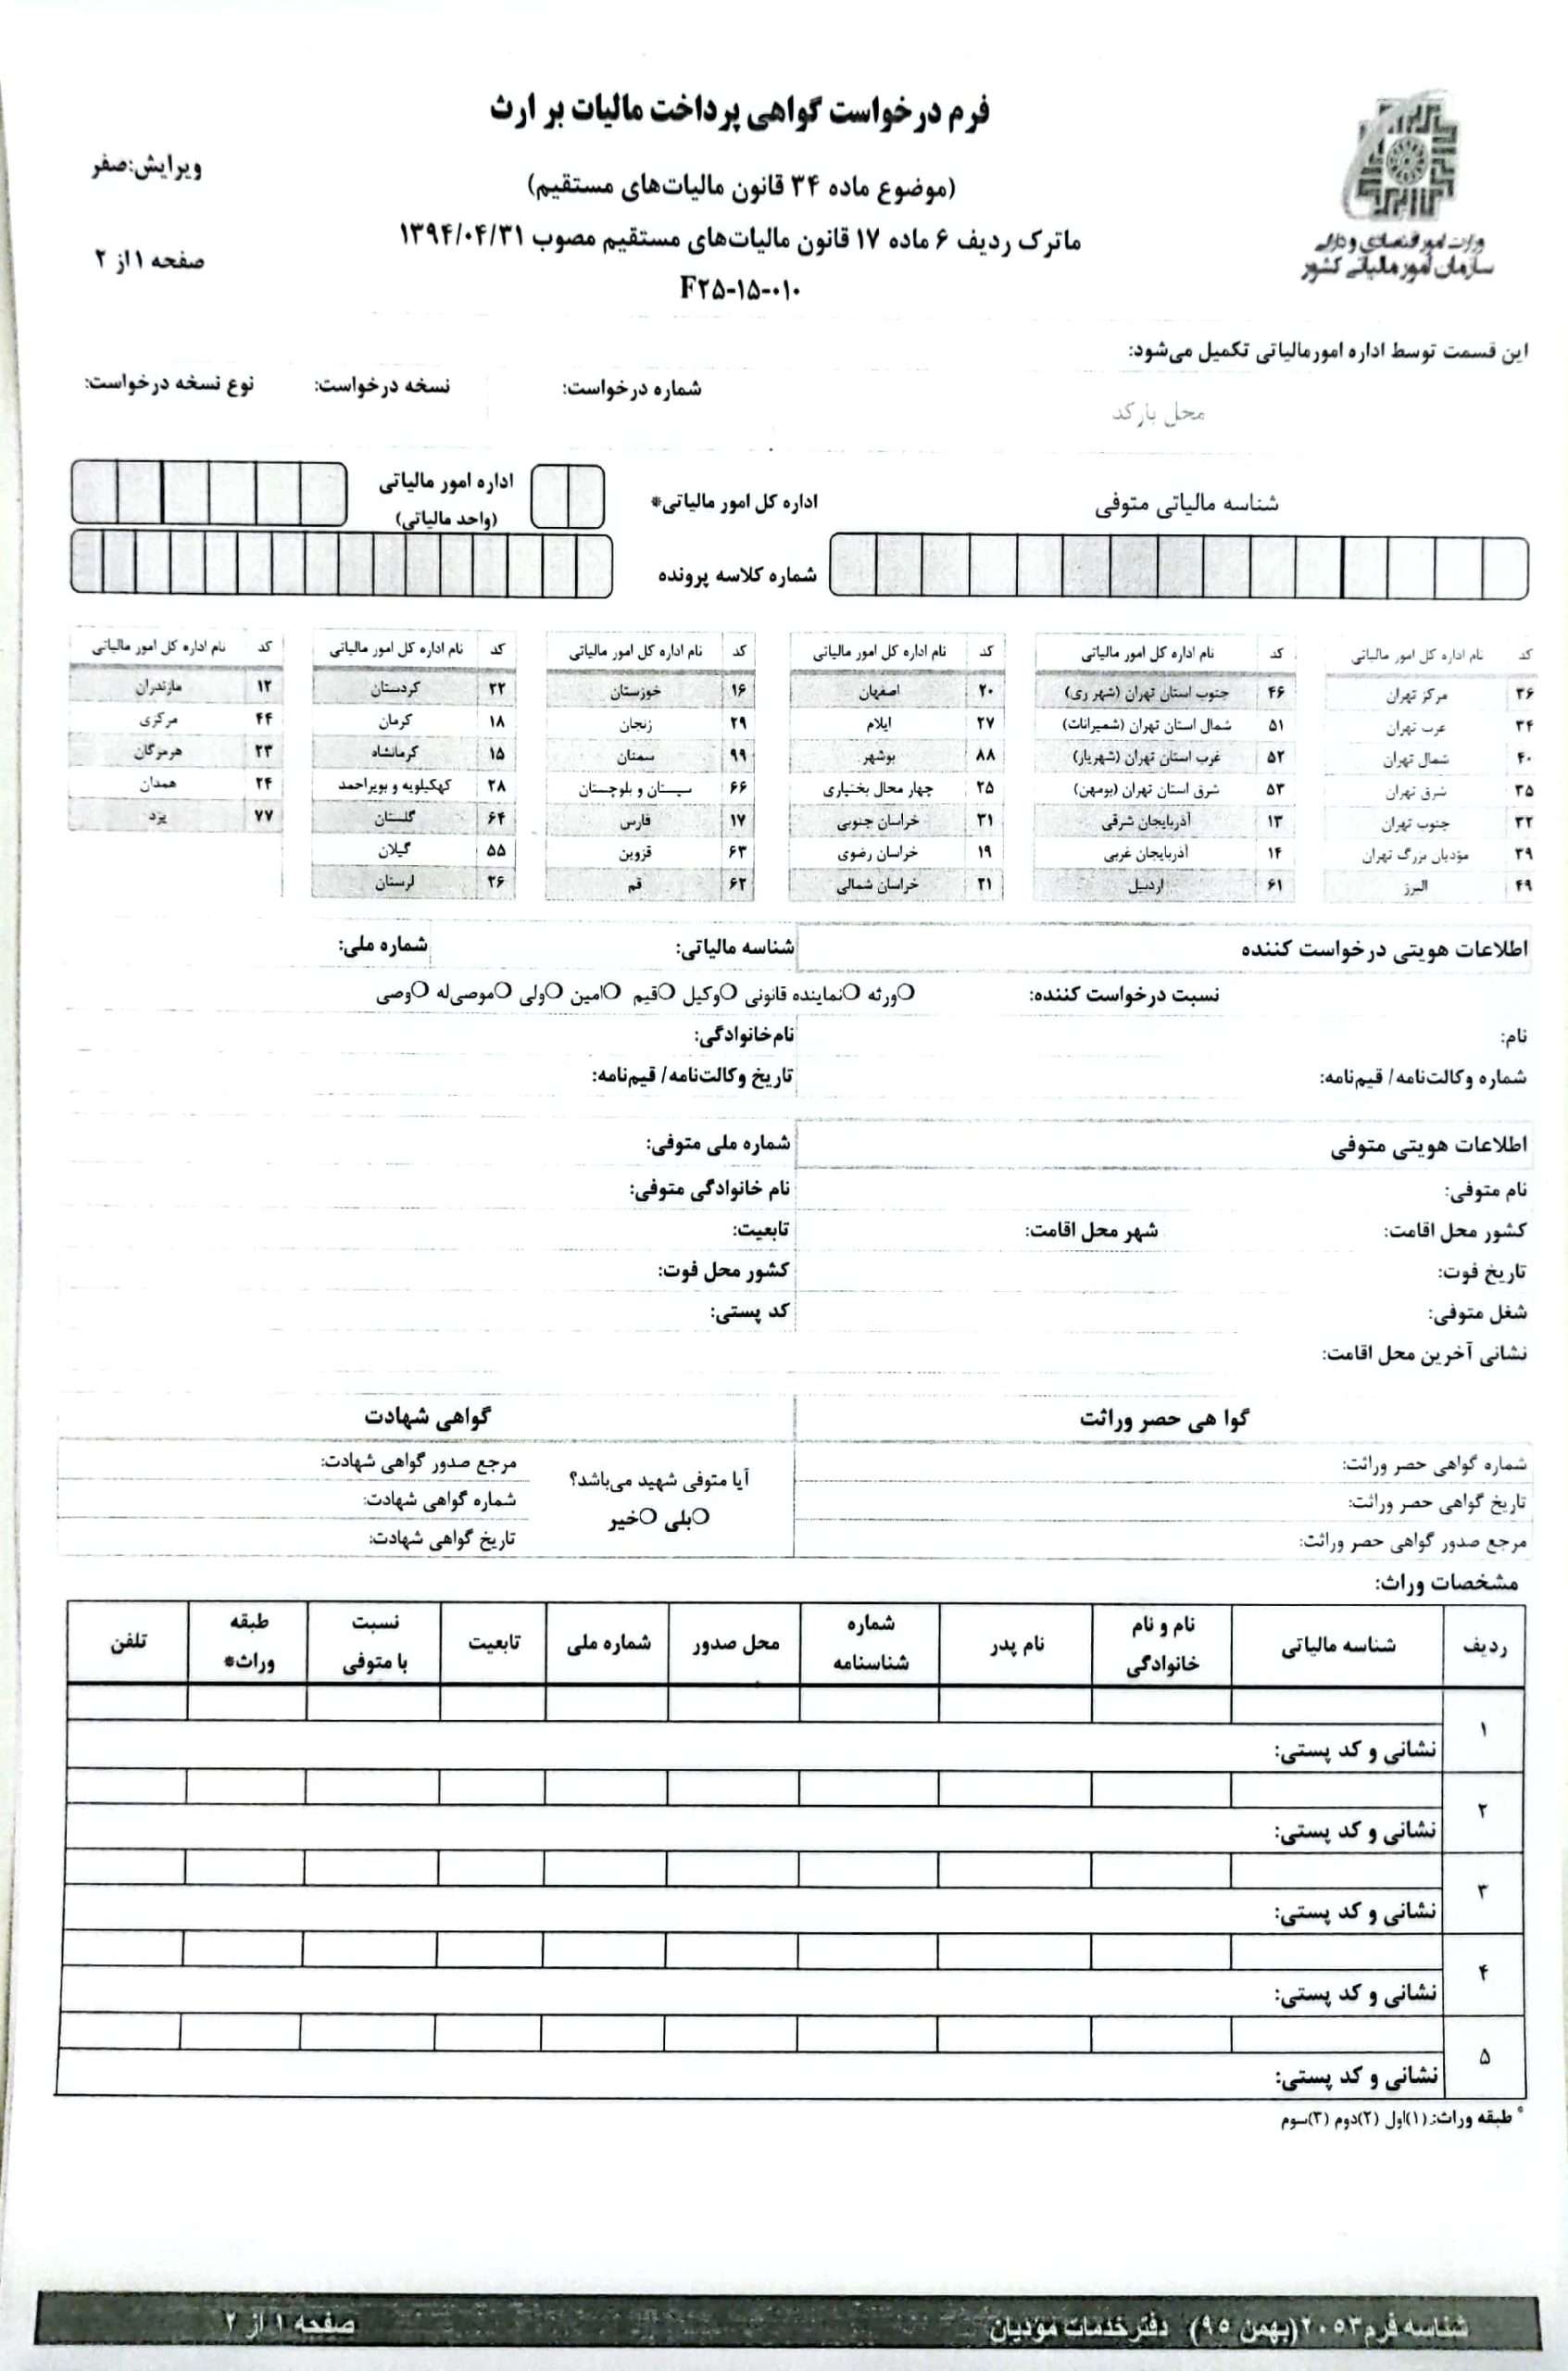 فرم درخواست گواهی پرداخت مالیات بر ارث
(موضوع ماده ۳۴ قانون مالیات‌های مستقیم)
ماترک ردیف ۶ ماده ۱۷ قانون مالیات‌های مستقیم مصوب ۱۳۹۴/۰۴/۳۱
F۲۵-۱۵-۰۱۰
وزارت امور اقتصادی و دارایی
سازمان امور مالیاتی کشور
ویرایش:صفر
صفحه ۱ از ۲
این قسمت توسط اداره امورمالیاتی تکمیل می‌شود:
محل بارکد
شماره درخواست: نسخه درخواست: نوع نسخه درخواست:
شناسه مالیاتی متوفی
اداره کل امور مالیاتی*
اداره امور مالیاتی
(واحد مالیاتی)
شماره کلاسه پرونده
کد نام اداره کل امور مالیاتی کد نام اداره کل امور مالیاتی کد نام اداره کل امور مالیاتی کد نام اداره کل امور مالیاتی کد نام اداره کل امور مالیاتی کد نام اداره کل امور مالیاتی
۳۶ مرکز تهران ۴۶ جنوب استان تهران (شهر ری) ۲۰ اصفهان ۱۶ خوزستان ۲۲ کردستان ۱۲ مازندران
۳۴ غرب تهران ۵۱ شمال استان تهران (شمیرانات) ۲۷ ایلام ۲۹ زنجان ۱۸ کرمان ۴۴ مرکزی
۴۰ شمال تهران ۵۲ غرب استان تهران (شهریار) ۸۸ بوشهر ۹۹ سمنان ۱۵ کرمانشاه ۲۳ هرمزگان
۳۵ شرق تهران ۵۳ شرق استان تهران (بومهن) ۲۵ چهار محال بختیاری ۶۶ سیستان و بلوچستان ۲۸ کهکیلویه و بویراحمد ۲۴ همدان
۳۲ جنوب تهران ۱۳ آذربایجان شرقی ۳۱ خراسان جنوبی ۱۷ فارس ۶۴ گلستان ۷۷ یزد
۳۹ مؤدیان بزرگ تهران ۱۴ آذربایجان غربی ۱۹ خراسان رضوی ۶۳ قزوین ۵۵ گیلان
۴۹ البرز ۶۱ اردبیل ۲۱ خراسان شمالی ۶۲ قم ۲۶ لرستان
اطلاعات هویتی درخواست کننده شناسه مالیاتی: شماره ملی:
نسبت درخواست کننده: ورثه نماینده قانونی وکیل قیم امین ولی موصی‌له وصی
نام: نام‌خانوادگی:
شماره وکالت‌نامه/ قیم‌نامه: تاریخ وکالت‌نامه/ قیم‌نامه:
اطلاعات هویتی متوفی شماره ملی متوفی:
نام متوفی: نام خانوادگی متوفی:
کشور محل اقامت: شهر محل اقامت: تابعیت:
تاریخ فوت: کشور محل فوت:
شغل متوفی: کد پستی:
نشانی آخرین محل اقامت:
گوا هی حصر وراثت گواهی شهادت
شماره گواهی حصر وراثت: آیا متوفی شهید می‌باشد؟ مرجع صدور گواهی شهادت:
تاریخ گواهی حصر وراثت: بلی خیر شماره گواهی شهادت:
مرجع صدور گواهی حصر وراثت: تاریخ گواهی شهادت:
مشخصات وراث:
ردیف شناسه مالیاتی نام و نام خانوادگی نام پدر شماره شناسنامه محل صدور شماره ملی تابعیت نسبت با متوفی طبقه وراث* تلفن
۱ نشانی و کد پستی:
۲ نشانی و کد پستی:
۳ نشانی و کد پستی:
۴ نشانی و کد پستی:
۵ نشانی و کد پستی:
* طبقه وراث: ۱)اول ۲)دوم ۳)سوم
شناسه فرم۲۰۵۳(بهمن ۹۵) دفتر خدمات مؤدیان صفحه ۱ از ۲